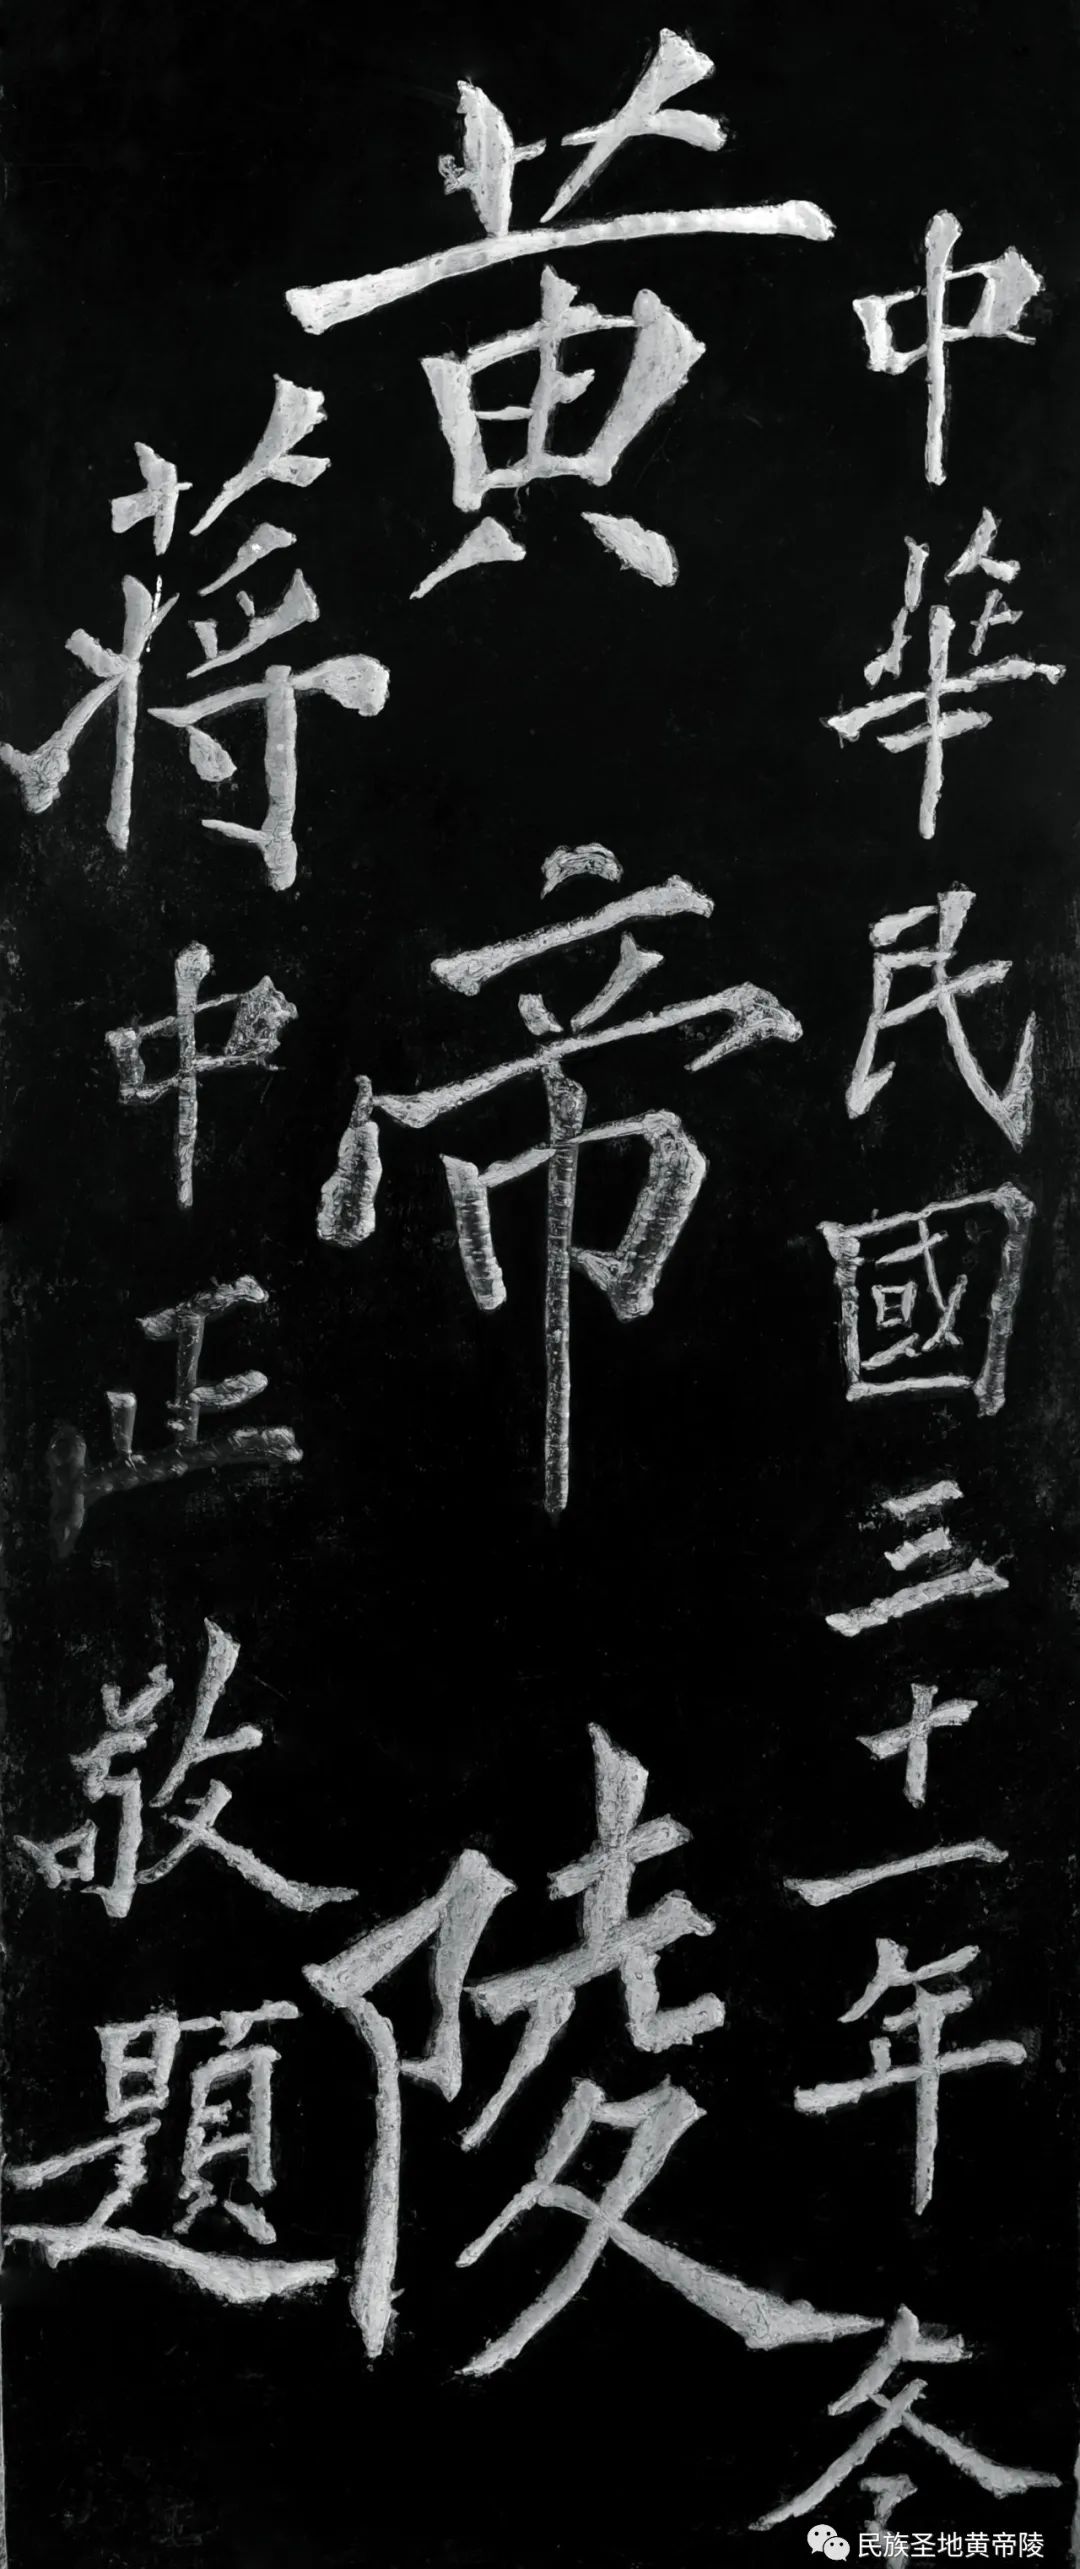 中華民國三十一年冬
黃帝陵
蔣中正敬題
民族圣地黄帝陵